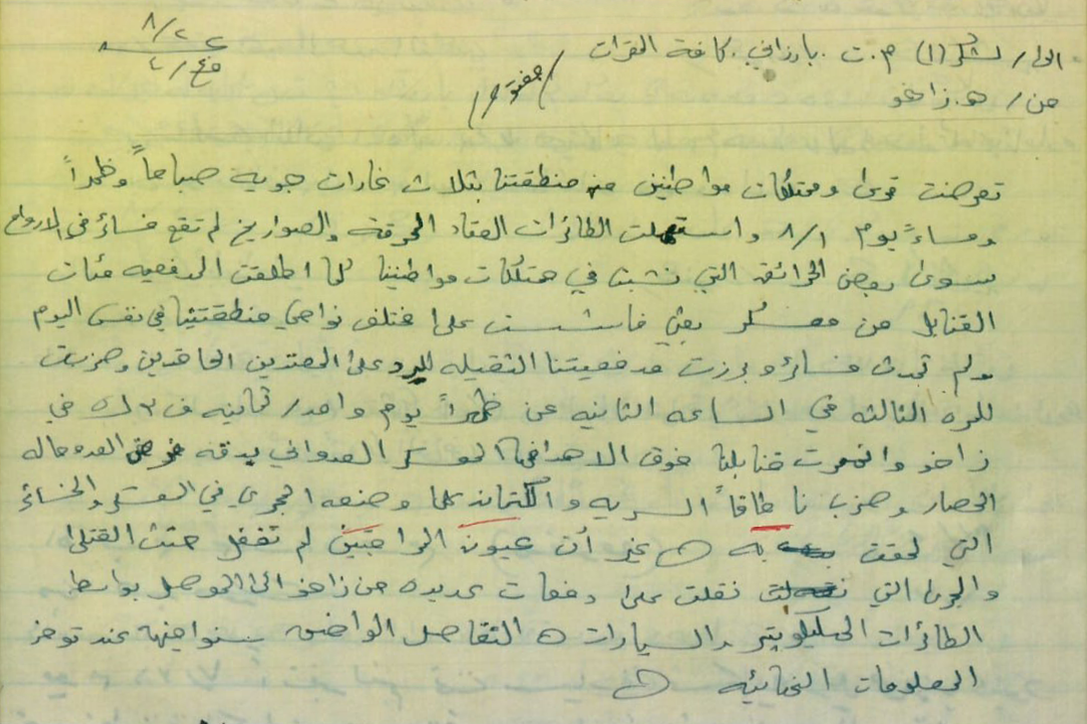 الى/ لشكر (١) م.ت. بارزاني. كافة المقرات
٨/٢٢
من/ هـ. زاخو
تعرضت قرى وممتلكات مواطنين من منطقتنا بثلاث غارات جوية صباحاً وظهراً
ومساءً يوم ٨/١ واستعملت الطائرات العتاد المحرقة والصواريخ لم تقع خسائر في الارواح
سوى بعض الحرائق التي نشبت في ممتلكات مواطنينا كما اطلقت المدفعيه مئات
القنابل من معسكر على مختلف نواحي منطقتنا في نفس اليوم
ولم تحدث خسائر وبرزت مدفعيتنا الثقيله للرد على المعتدين الحاقدين وضربت
للمره الثالثه في الساعه الثانيه من ظهراً يوم واحد/ ثمانيه ف ٣ ل٥ في
زاخو وانهمرت قنابلنا فوق الاهداف المعسكر العدواني بدقه العدو حاله
الحصار وضرب نا طاقاً السريه والكتمان على وضعه المجرى في المعسكر والخسائر
التي لحقت به ه غير أن عيون لم تغفل جثث القتلى
والجرحى التي نقلت على دفعات عديده من زاخو الى الموصل بواسطه
الطائرات الهليكوپتر والسيارات ه التفاصل سنوافيها عند توفر
المعلومات النهائيه ه